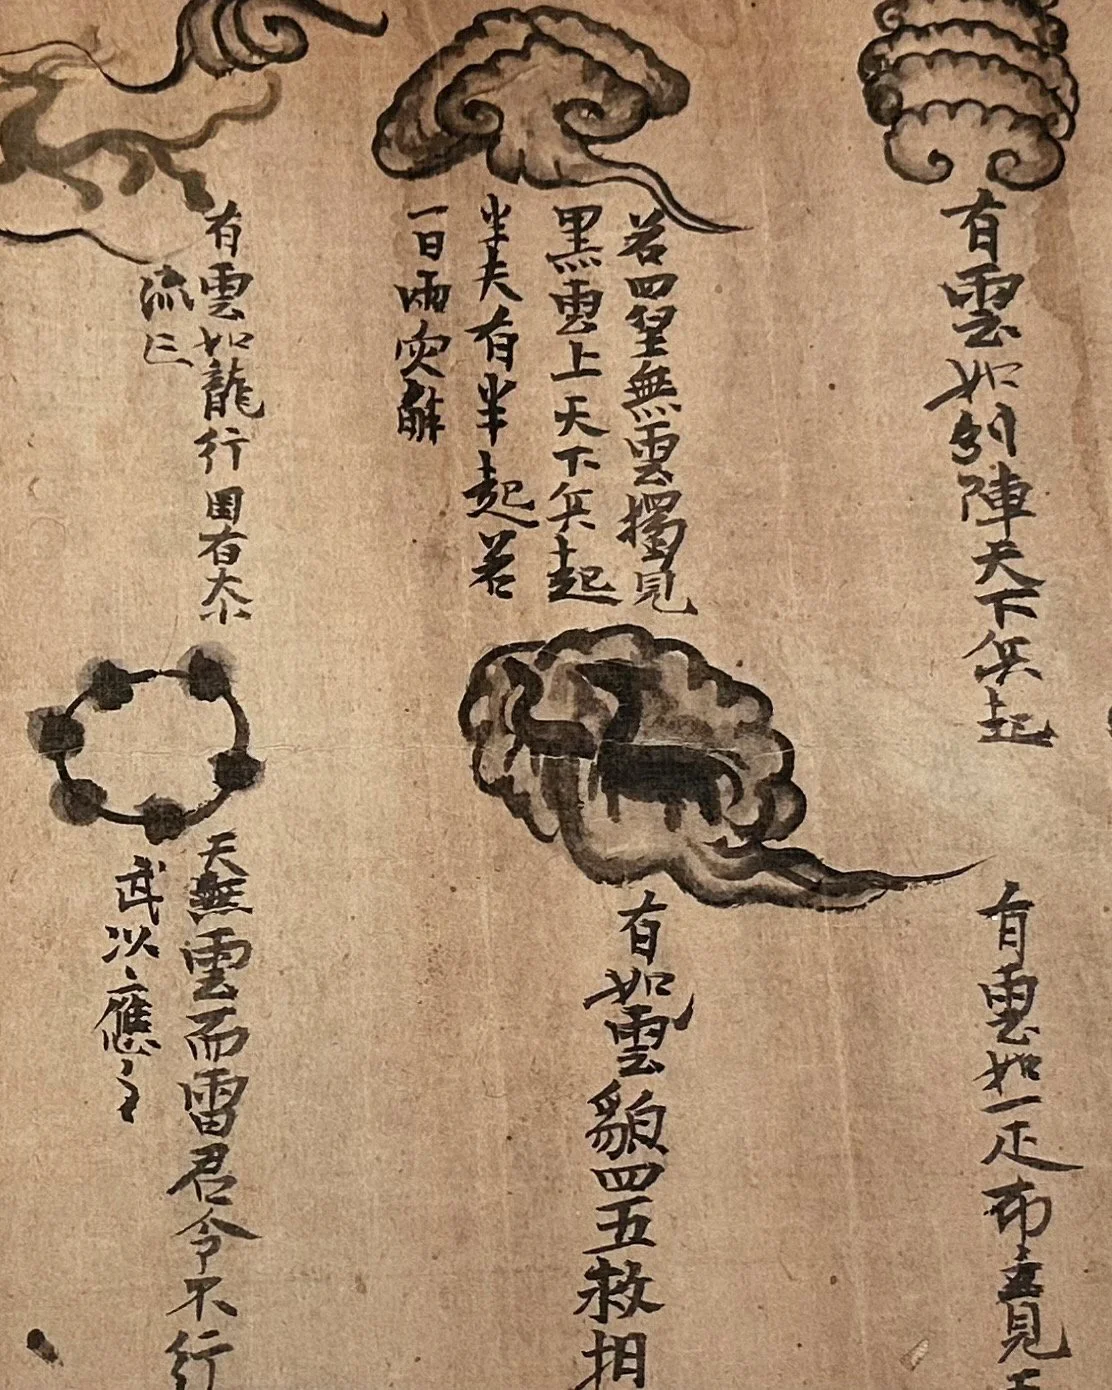 有雲如列陣天下兵起
若四望無雲獨見
黑雲上天下兵起
半夫有半起若
一日雨灾解
有雲如龍行國有大
流亡
有雲如一疋布竟見
有如雲貌四五救相
天無雲而雷君令不行
武以應之